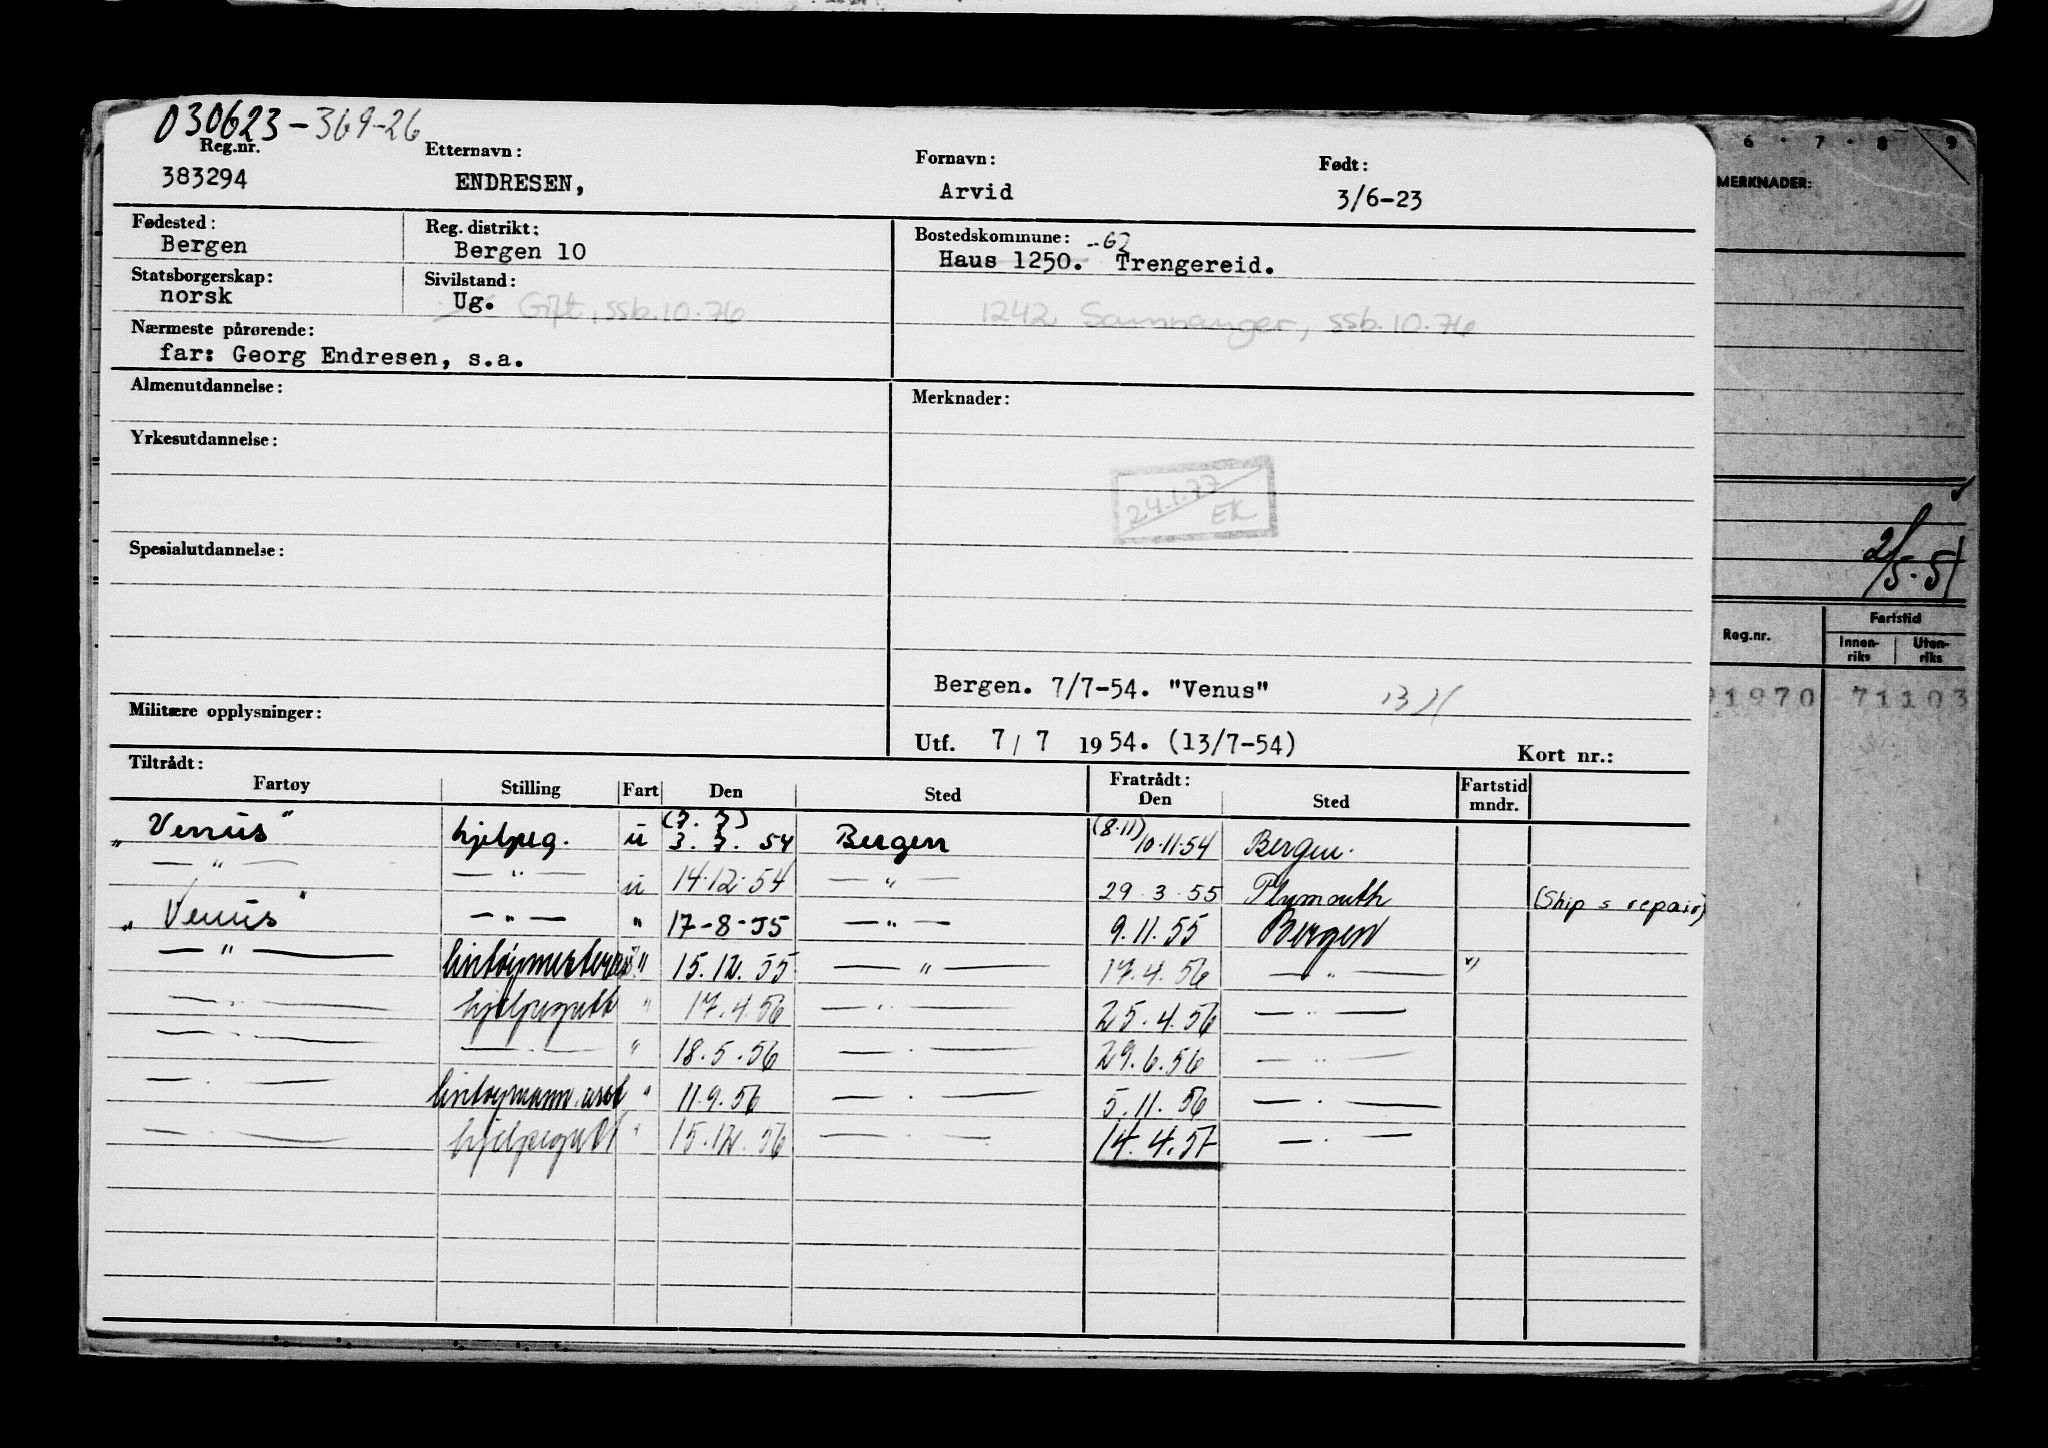 030623-369-26
Reg.nr. Etternavn: Fornavn: Født:
383294 ENDRESEN, Arvid 3/6-23
Fødested: Reg. distrikt: Bostedskommune: -62
Bergen Bergen 10 Haus 1250. Trengereid.
Statsborgerskap: Sivilstand:
norsk Ug. Gift, ssb.10.76 1242 Samnanger, ssb.10.76
Nærmeste pårørende:
far: Georg Endresen, s.a.
Almenutdannelse: Merknader:
Yrkesutdannelse:
24.1.77
EK
Spesialutdannelse:
Bergen. 7/7-54. "Venus"
Militære opplysninger:
Utf. 7/7 1954. (13/7-54) Kort nr.:
Tiltrådt: Fratrådt:
Fartøy Stilling Fart Den Sted Den Sted Fartstid mndr.
(7. 7) (8.11)
"Venus" hjelpeg. u 3. 7. 54 Bergen 10.11.54 Bergen.
— " — — " — u 14.12.54 — " — 29.3.55 Plymouth (Ship s repair)
"Venus" — " — " 17-8-55 — " — 9.11.55 Bergen
— " — " 15.12.55 — " — 17.4.56 — " — "
— " — hjelpegutt " 17.4.56 — " — 25.4.56 — " —
— " — — " — " 18.5.56 — " — 29.6.56 — " —
— " — lintøymann.asst " 11.9.56 — " — 5.11.56 — " —
— " — hjelpegutt " 15.12.56 — " — 14.4.57 — " —
6 . 7 . 8 9
MERKNADER:
2/5.51
Fartstid
Reg.nr. Innen-riks Uten-riks
1970 71103